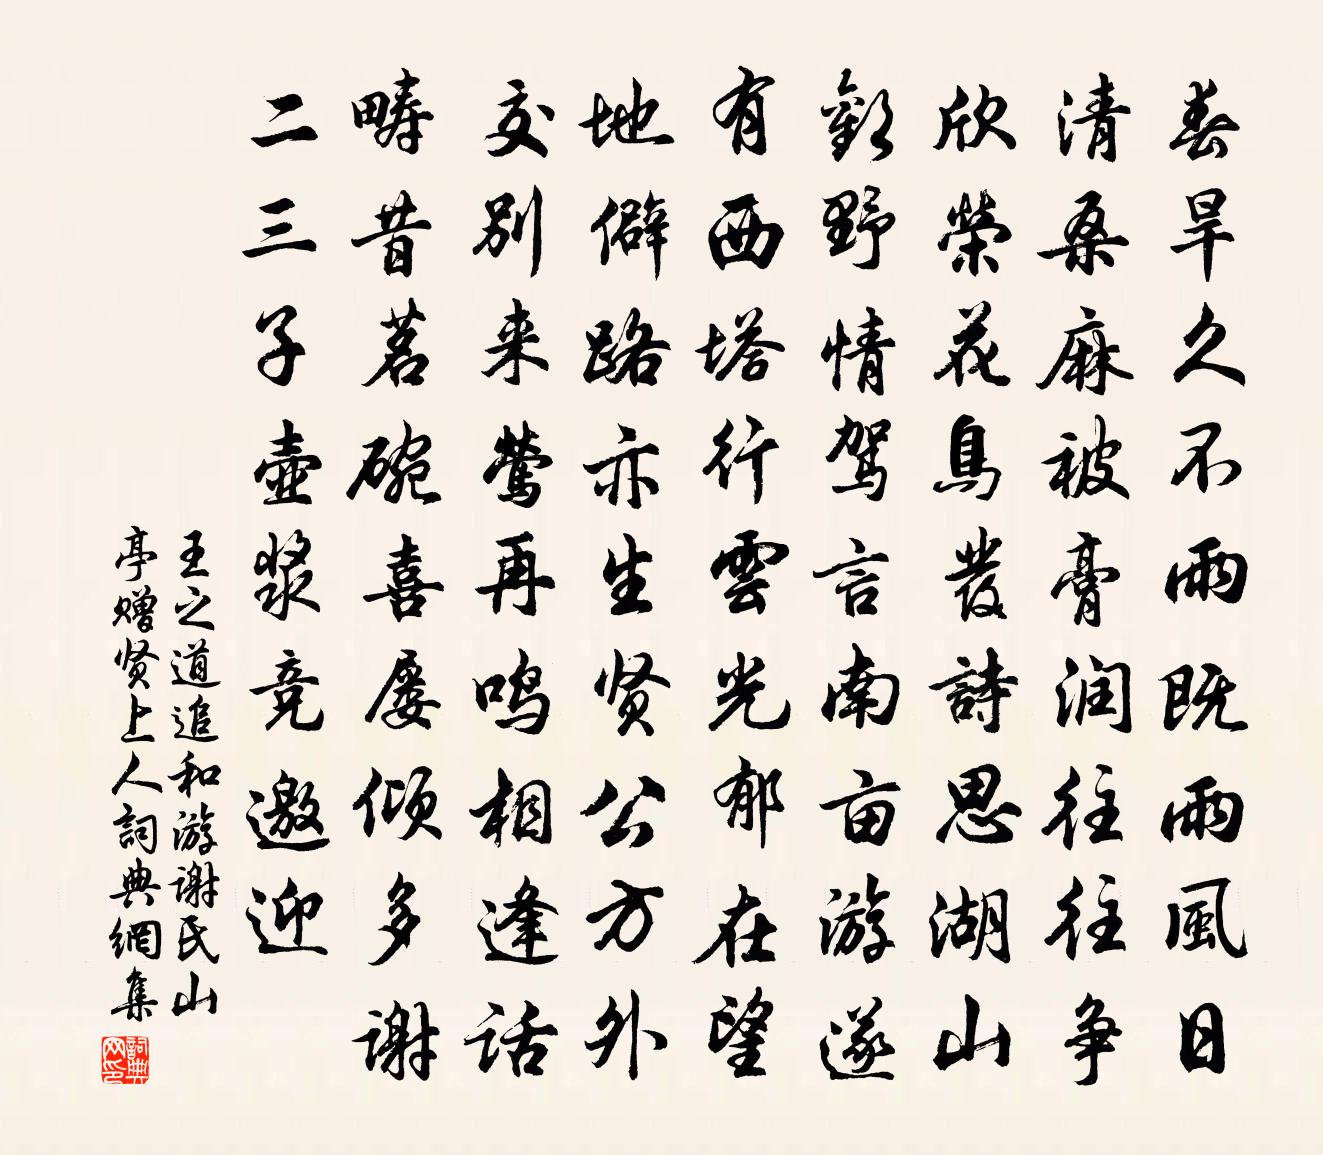 春旱久不雨既雨風日
清桑麻被膏润往往争
欣榮花鳥發詩思湖山
勸野情駕言南亩游遂
有西塔行雲光郁在望
地僻路亦生贤公方外
交别来莺再鸣相逢话
畴昔茗碗喜屡倾多谢
二三子壶漿竞邀迎
王之道追和游谢氏山
亭赠贤上人詞典網集
詞典网印